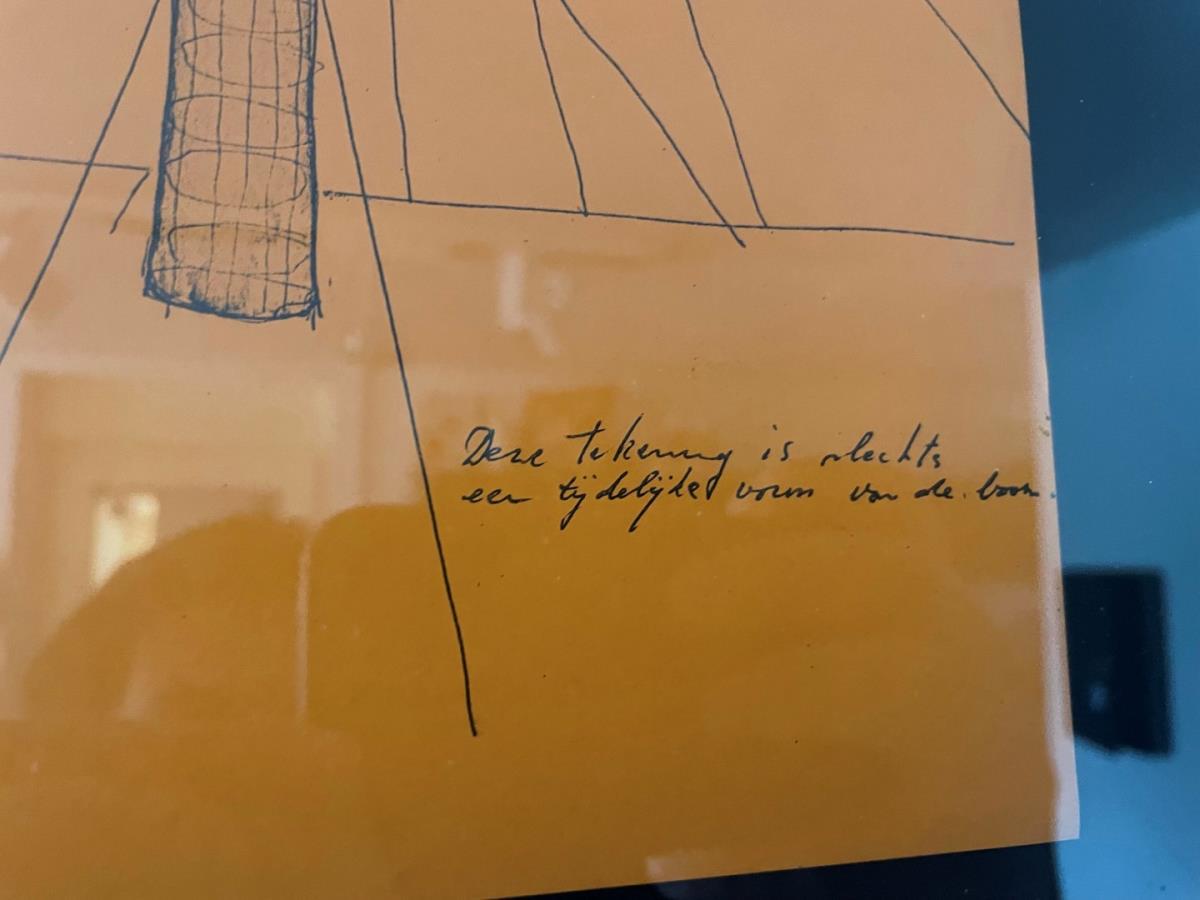 Deze tekening is slechts
een tijdelijke vorm van de boom.